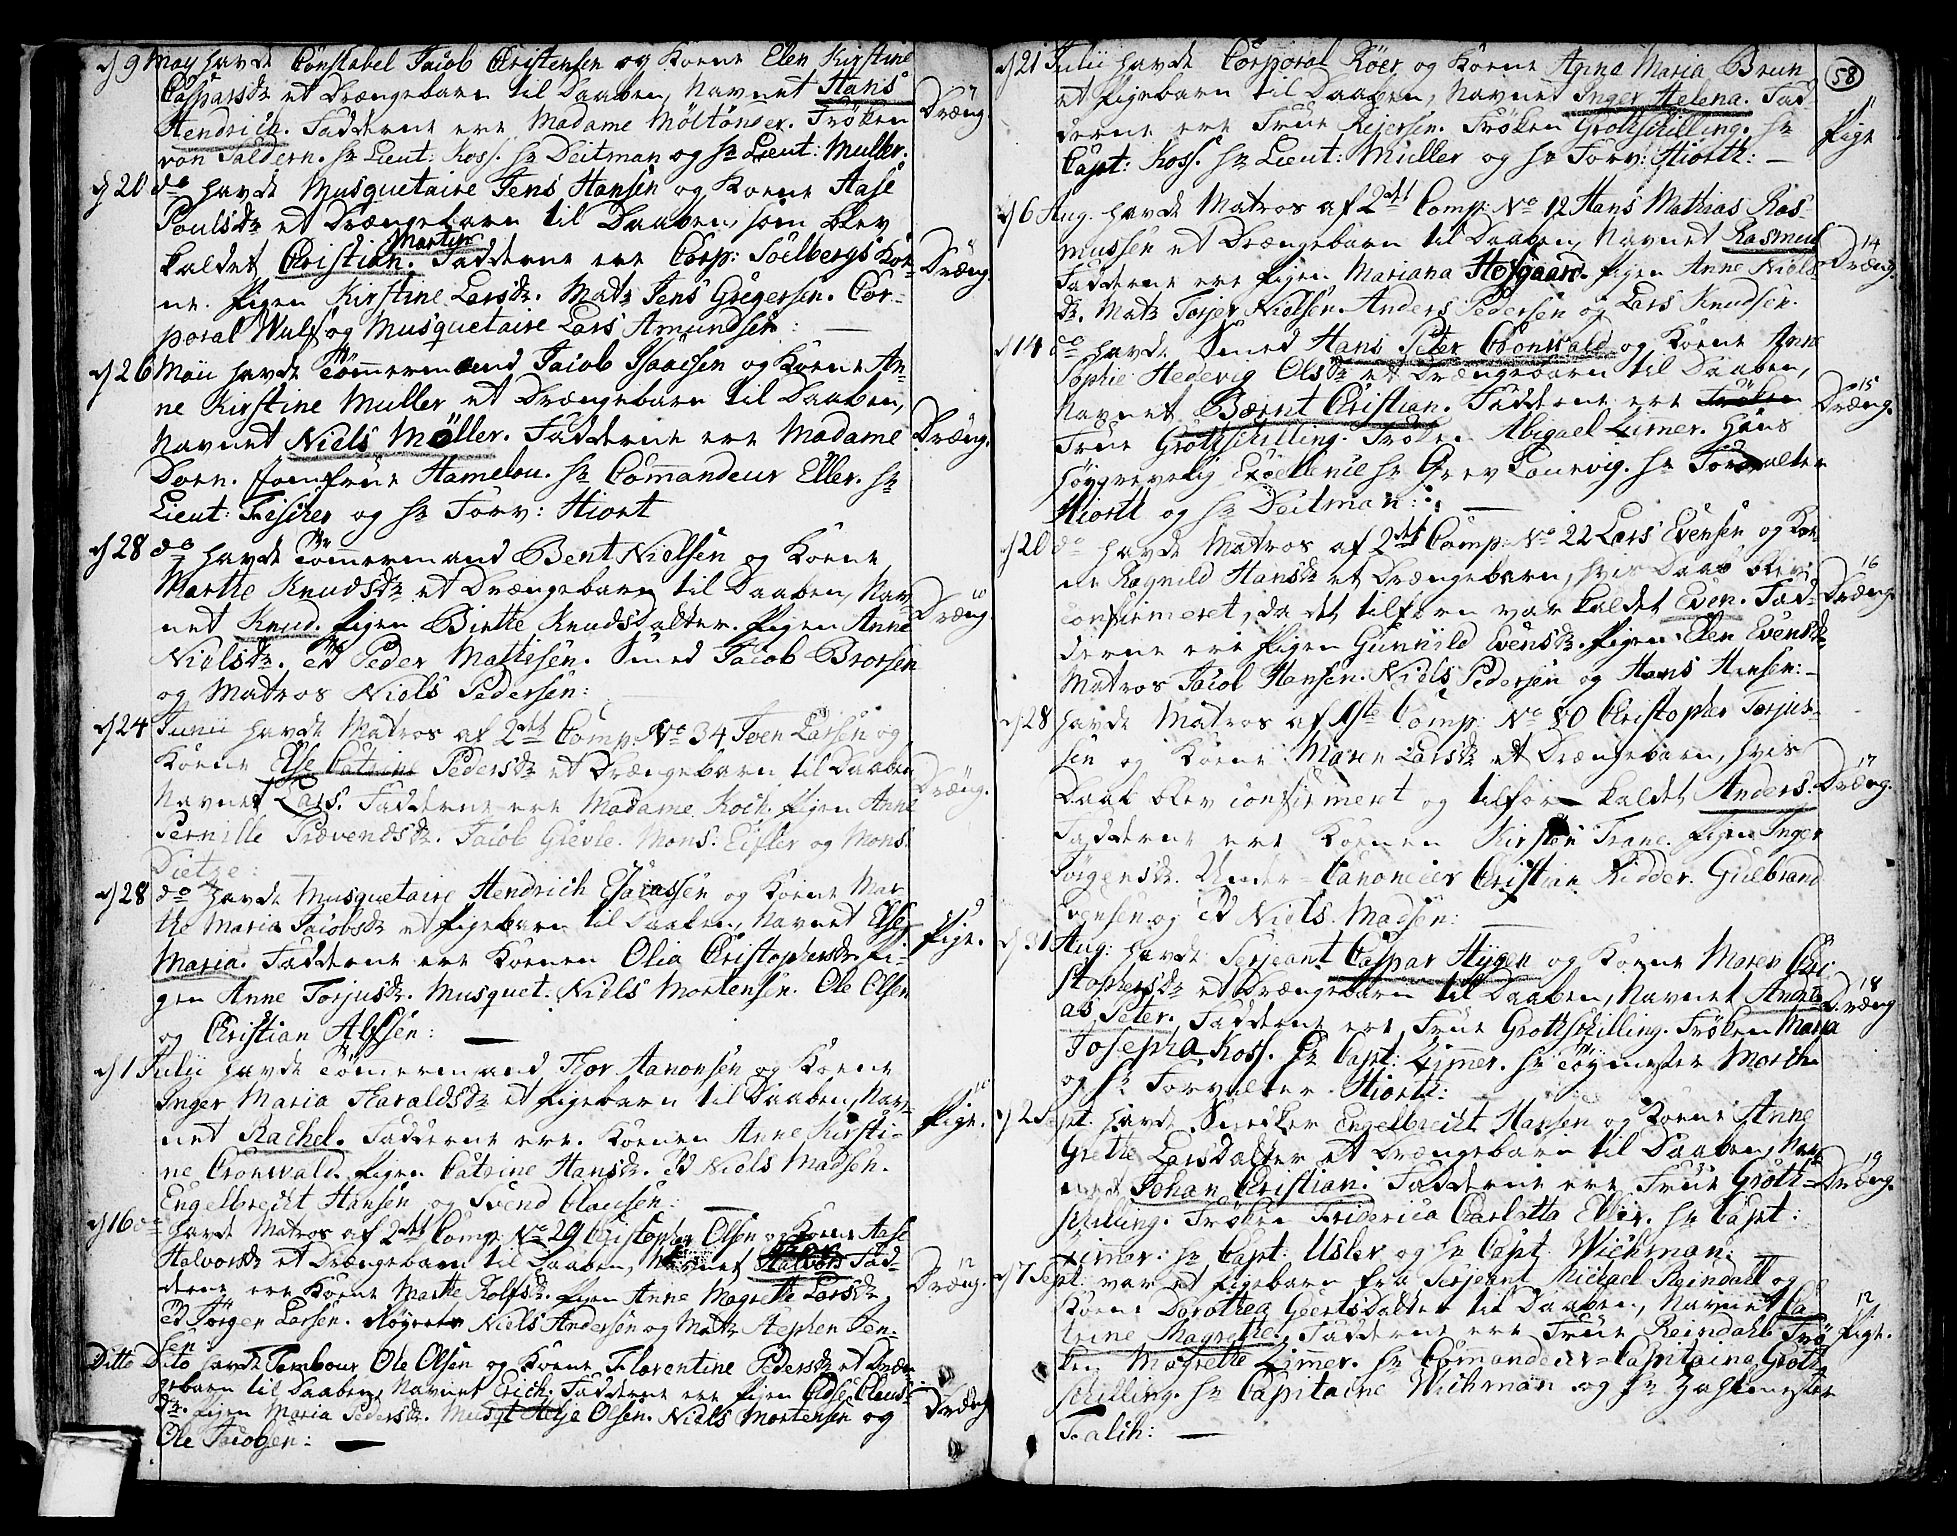 d 9 May havde Constabel Jacob Christensen og Kone Elen Kirstine
Caspersdr et Drængebarn til Daaben, Navnet Hans
Hendrich. Fadderne ere Madame Möltönser. Fröken
von Saldern. Hr Lieut: Koss. Hr Deitman og Hr Lieut: Muller.
Dräng
d 20 do havde Musquetaire Jens Hansen og Kone Aase
Poulsdr et Drængebarn til Daaben, som blev
kaldet Christian Martin. Fadderne ere Corp: Soelbergs Kone
ne. Pigen Kirstine Larsdr. Matr Jens Gregersen. Cor-
poral Wulf og Musquetaire Lars Amundsen: —
Dräng.
d 26 Maii havde Tömmermand Jacob Isaacsen og Kone An-
ne Kirstine Muller et Drængebarn til Daaben,
Navnet Niels Möller. Fadderne ere Madame
Dorn. Jomfrue Hamelou. Hr Commandeur Eller. Hr
Lieut: Fischer og Hr Forv: Hiort
Dräng.
d 28 do havde Tömmermand Bent Nielsen og Kone
Marthe Knudsdr et Drængebarn til Daaben, Nav-
net Knud. Pigen Birthe Knudsdatter. Pigen Anne
Nielsdr. Peder Mathisen. Smed Jacob Brorsen
og Matros Niels Pedersen:
Dräng
d 24 Junii havde Matros af 2det Comp No 34 Iven Larsen og
Kone Else Catrine Pedersdr et Drængebarn til Daaben,
Navnet Lars. Fadderne ere Madame Koch. Pigen Anne
Pernille Prævensdr. Jacob Grevle. Mons: Eisler og Mons:
Dietze:
Dräng.
d 28 do havde Musquetaire Hendrich Esaiassen og Kone Mar
the Maria Jacobsdr et Pigebarn til Daaben, Navnet Else
Maria. Fadderne ere Konen Olia Christophersdr. Pi-
gen Anne Torjusdr. Musquet. Niels Mortensen. Ole Olsen
og Christian Alssen: —
9
Pige.
d 1 Julii havde Tömmermand Thor Aanonsen og Kone
Inger Maria Haraldsdr et Pigebarn til Daaben, Nav-
net Rachel. Fadderne ere. Konen Anne Kirsti-
ne Cronwald. Pigen Catrine Hansdr. Niels Madsen.
Engelbrecht Hansen og Svend Clausen: —
Pige.
d 16 do havde Matros af 2det Comp No 29 Christopher Olsen og Kone Aase
Halvorsdr et Drængebarn til Daaben, Navnet Halvor. Fad-
derne ere Kone Marthe Rolfsdr. Pigen Anne Magrethe Larsdr,
Jörgen Larsen. Niels Andersen og Matr Stephen Jen-
sen
12
Dräng.
Ditto Dito havde Tambour Ole Olsen og Kone Florentine Pedersdr et Dræn-
gebarn til Daaben, Navnet Erich. Fadderne ere Pigen Clausdr
dr. Pigen Maria Pedersdr. Musqt Helje Olsen. Niels Mortensen og
Ole Jacobsen: —
Dräng
58
d 21 Julii havde Corporal Röer og Kone Anne Maria Brun
et Pigebarn til Daaben, Navnet Inger Helena. Fad
derne ere Frue Rejersen. Fröken Grottschilling. Hr
Capt: Koss. Hr Lieut: Muller og Hr Forv: Hiorth: —
11
Pige
d 6 Aug. havde Matros af 2det Comp: No 12 Hans Mathias Ras-
mussen et Drængebarn til Daaben, Navnet Rasmus
Fadderne ere Pigen Mariana Hofgaard. Pigen Anne Niels
dr. Matr Torjer Nielsen. Anders Pedersen og Lars Knudsen.
14
Dräng.
d 14 do havde Smed Hans Peter Cronwald og Kone Anne
Sophie Hedevig Olsdr et Drængebarn til Daaben,
Navnet Bærnt Christian. Fadderne ere Fröken
Frue Grottschilling. Fröken Abigael Zimer. Hans
Höygrevelig Excellence Hr Grev Laurvig. Hr Forvalter
Hiorth og Hr Deitman: —
15
Dräng.
d 20 do havde Matros af 2det Comp: No 22 Lars Evensen og Ko-
ne Ragnild Hansdr et Drængebarn, hvis Daab blev
confirmeret, da det tilforn var kaldet Even. Fad-
derne ere Pigen Gunnild Evensdr. Pigen Elen Evensdr
Matros Jacob Hansen. Niels Pedersen og Hans Hansen: —
16
Dräng.
d 28 havde Matros af 1ste Comp: No 80 Christopher Torjus-
sen og Kone Maren Larsdr et Drængebarn, hvis
Daab blev confirmert og tilforn kaldet Anders.
Fadderne ere Konen Kirsten Trane. Pigen Inger
Jörgensdr. Under-Canoneer Christian Ridder. Gulbrand
Evensen og Niels Madsen:
17
Dräng.
d 31 Aug: havde Serjeant Caspar Hygen og Kone Maren Chri-
stophersdr et Drængebarn til Daaben, Navnet Andre-
as Peter. Fadderne ere Frue Grottschilling. Fröken Maria
Josepha Koss. Hr Capt: Zimmer. Hr Töymester Morth
og Hr Forvalter Hiorth:
18
Dräng
d 2 Sept. havde Snedker Engelbrecht Hansen og Kone Anne
Grethe Larsdatter et Drængebarn til Daaben, Nav
net Johan Christian. Fadderne ere Frue Grott-
schilling. Fröken Friderica Carlotta Eller. Hr Capt:
Zimmer: Hr Capt: Usler og Hr Capt: Wichman: —
19
Dräng.
d 7 Sept: var et Pigebarn fra Serjeant Michael Reindahl og
Kone Dorothea Goertsdatter til Daaben, Navnet Ca
trine Magrethe. Fadderne ere Frue Reindahl. Frö
ken Magrethe Zimer. Hr Commandeur-Capitaine Grott-
schilling. Hr Capitaine Wichman og Hr Zahlmester
Falch: —
12
Pige.